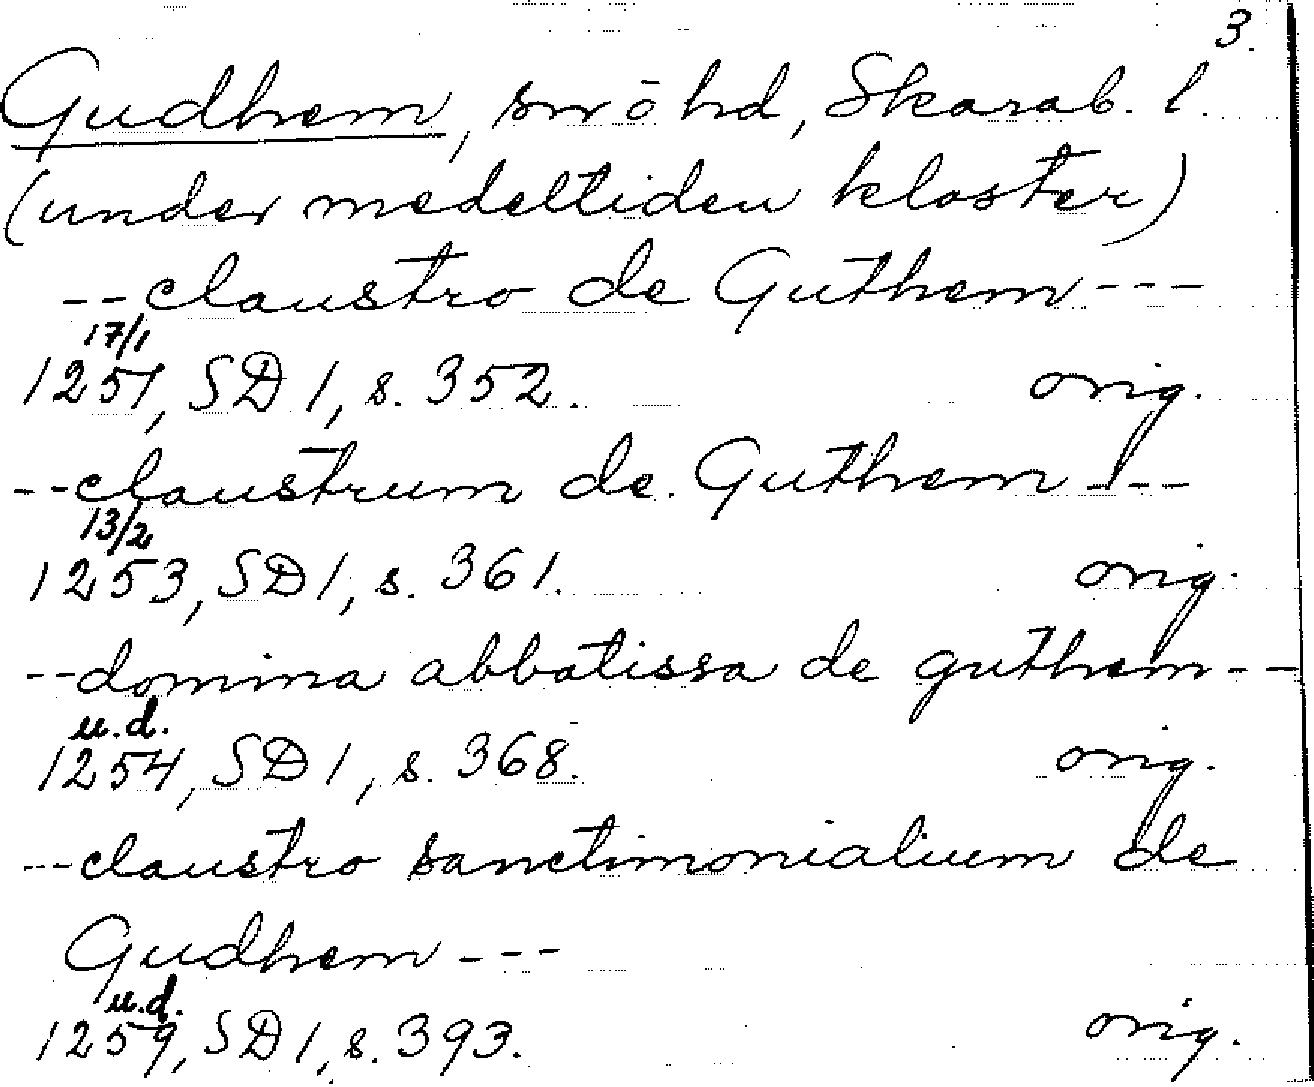 3.
Gudhem, sn o hd, Skarab. l.
(under medeltiden kloster)
-- claustro de Guthem ---
17/1
1251, SD 1, s. 352. orig.
-- claustrum de Guthem ---
13/2
1253, SD 1, s. 361. orig.
-- domina abbatissa de guthem --
u.d.
1254, SD 1, s. 368. orig.
-- claustro sanctimonialium de
Gudhem ---
u.d.
1259, SD 1, s. 393. orig.